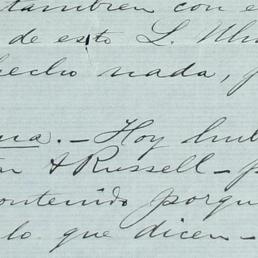 tambien con e
de esto L.
hecho nada,
na. - Hoy hub
& Russell -
contenido porqu
lo que dicen -